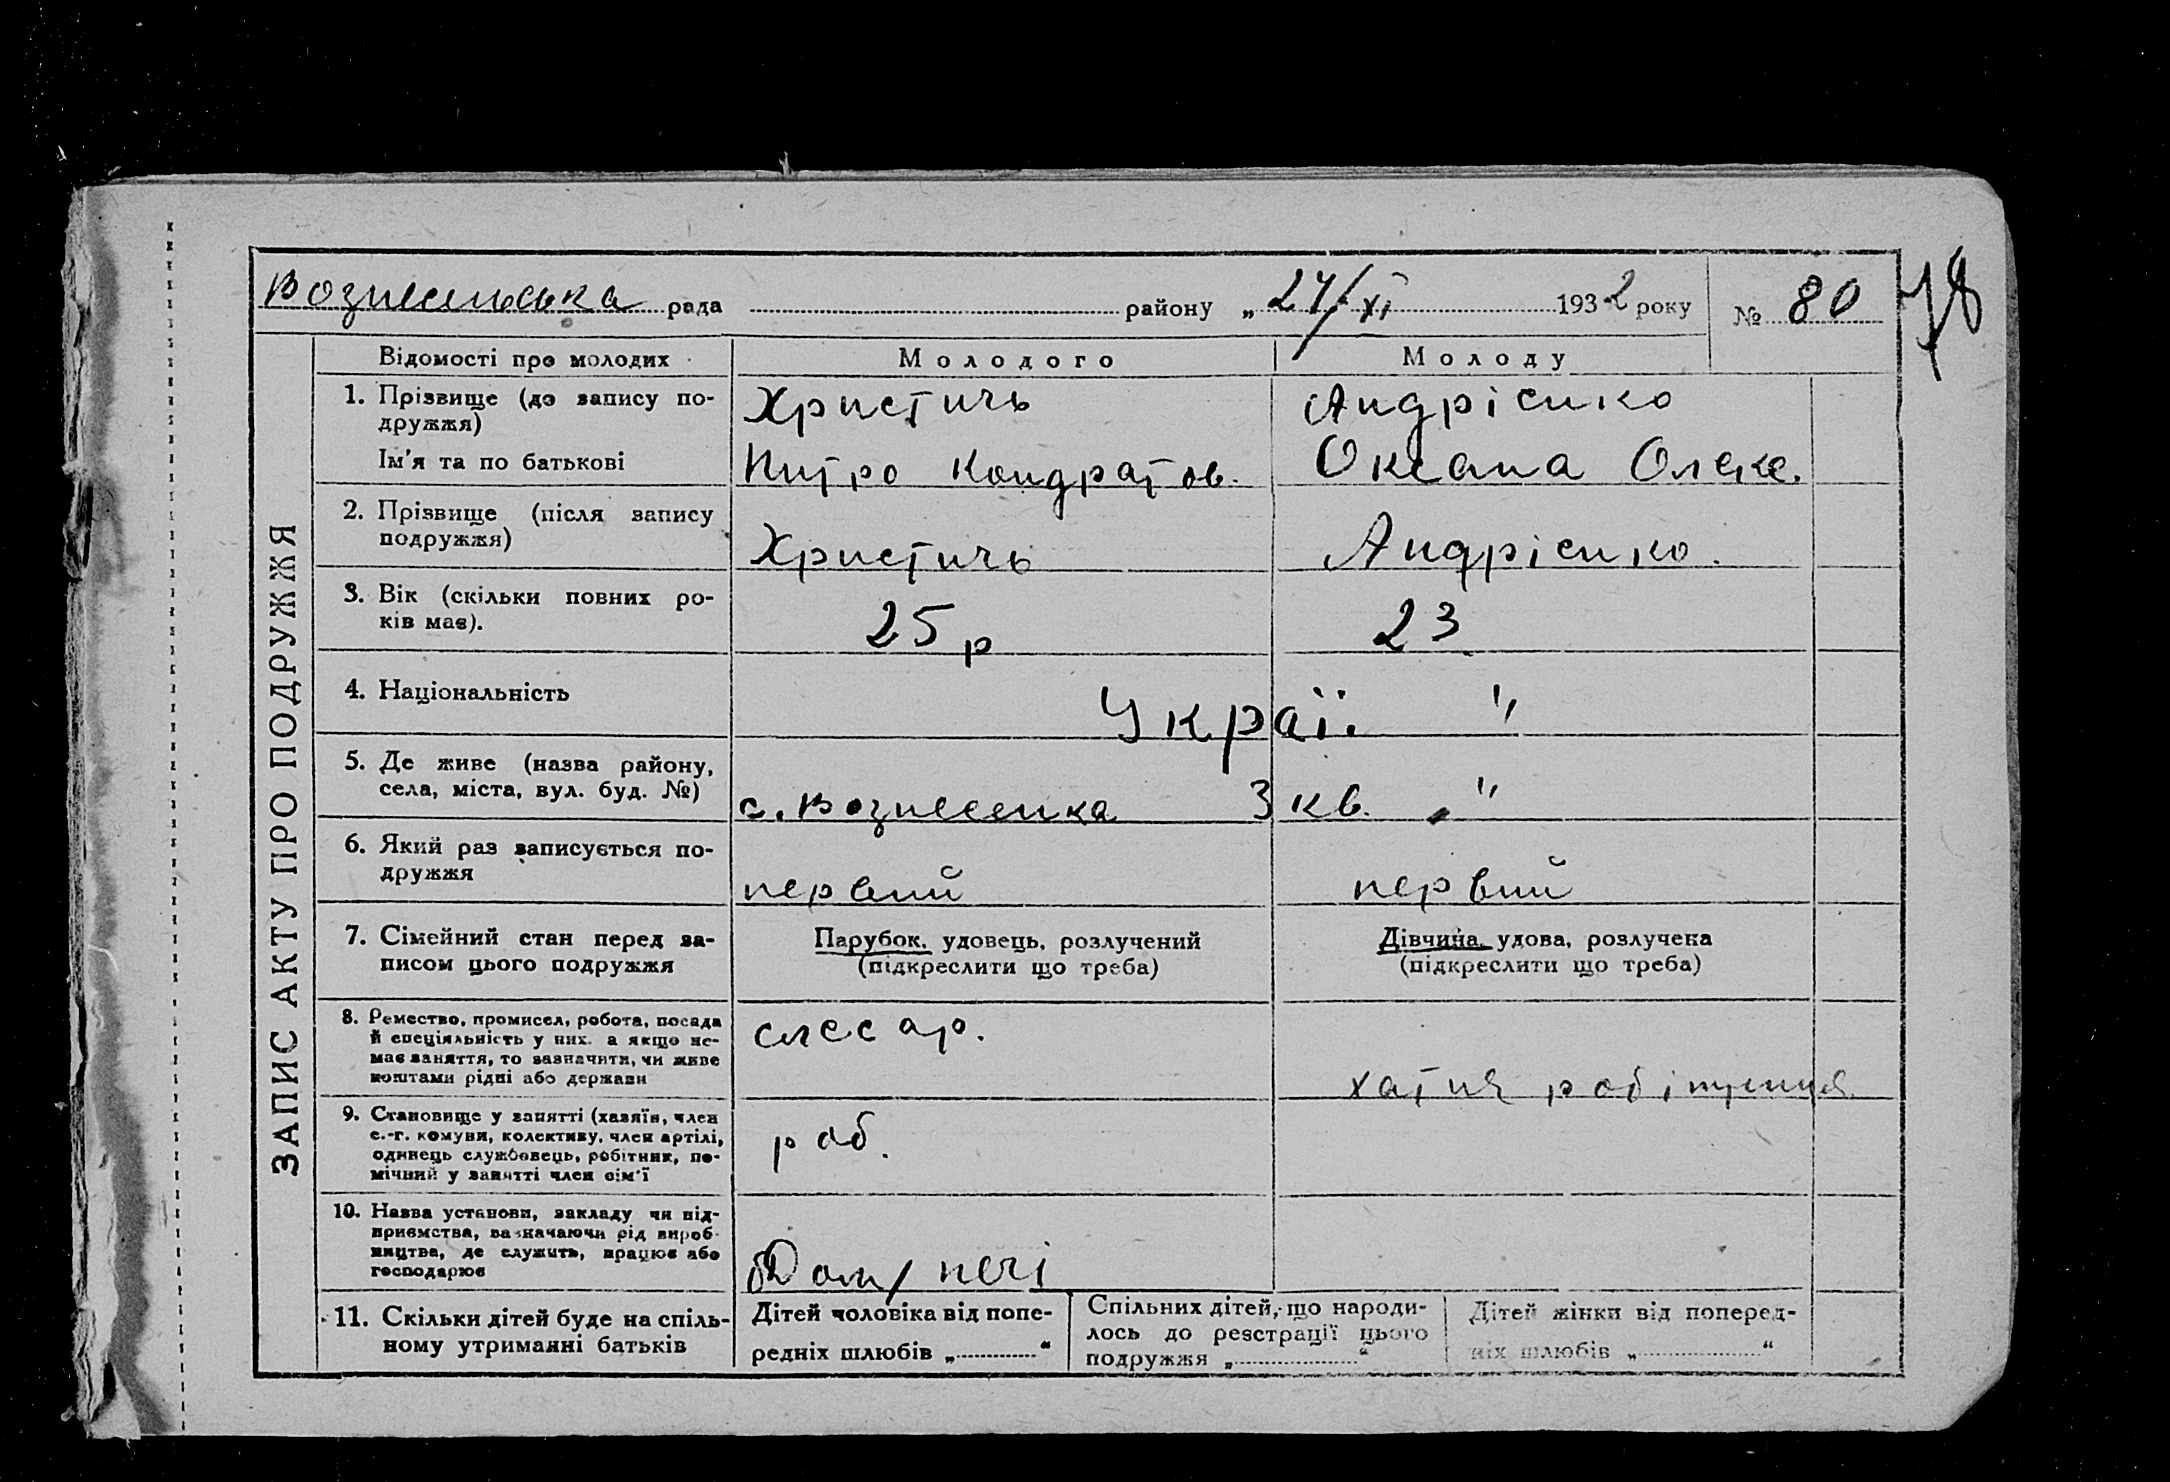 Вознесенська рада района „24/XI 1932 року № 80 78
ЗАПИС АКТУ ПРО ПОДРУЖЖЯ
Відомості про молодих Молодого Молоду
1. Прізвище (до запису по-
дружжя) Христичь Андрієнко
Ім'я та по батькові Митро Кондратов. Оксана Олекс.
2. Прізвище (після запису
подружжя) Христичь Андрієнко.
3. Вік (скільки повних ро-
ків має). 25 р 23
4. Національність Украї. "
5. Де живе (назва району,
села, міста, вул. буд. №) с. Вознесенка 3 кв. "
6. Який раз записується по-
дружжя первий первий
7. Сімейний стан перед за-
писом цього подружжя
Парубок, удовець, розлучений
(підкреслити що треба)
Дівчина, удова, розлучена
(підкреслити що треба)
8. Ремество, промисел, робота, посада
й спеціяльність у них, а якщо не-
має заняття, то зазначити, чи живе
коштами рідні або держави
слесар.
хатня робітниця
9. Становище у занятті (хазяїн, член
с.-г. комуни, колективу, член артілі,
одинець службовець, робітник, по-
мічний у занятті член сім'ї
роб.
10. Назва установи, закладу чи під-
приємства, зазначаючи рід вироб-
ництва, де служить, працює або
господарює
Дом/ печі
11. Скільки дітей буде на спіль-
ному утриманні батьків
Дітей чоловіка від попе-
редніх шлюбів „ “
Спільних дітей, що народи-
лось до реєстрації цього
подружжя „ “
Дітей жінки від поперед-
ніх шлюбів „ “